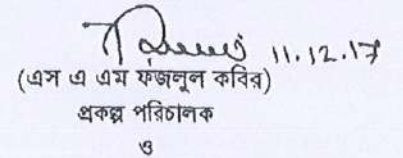 11.12.17
(এস এ এম ফজলুল কবির)
প্রকল্প পরিচালক
ও